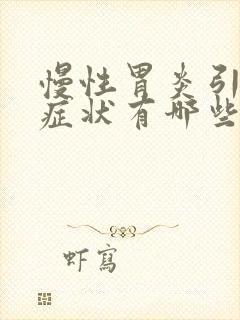 慢性胃炎引
症状有哪些
虾写